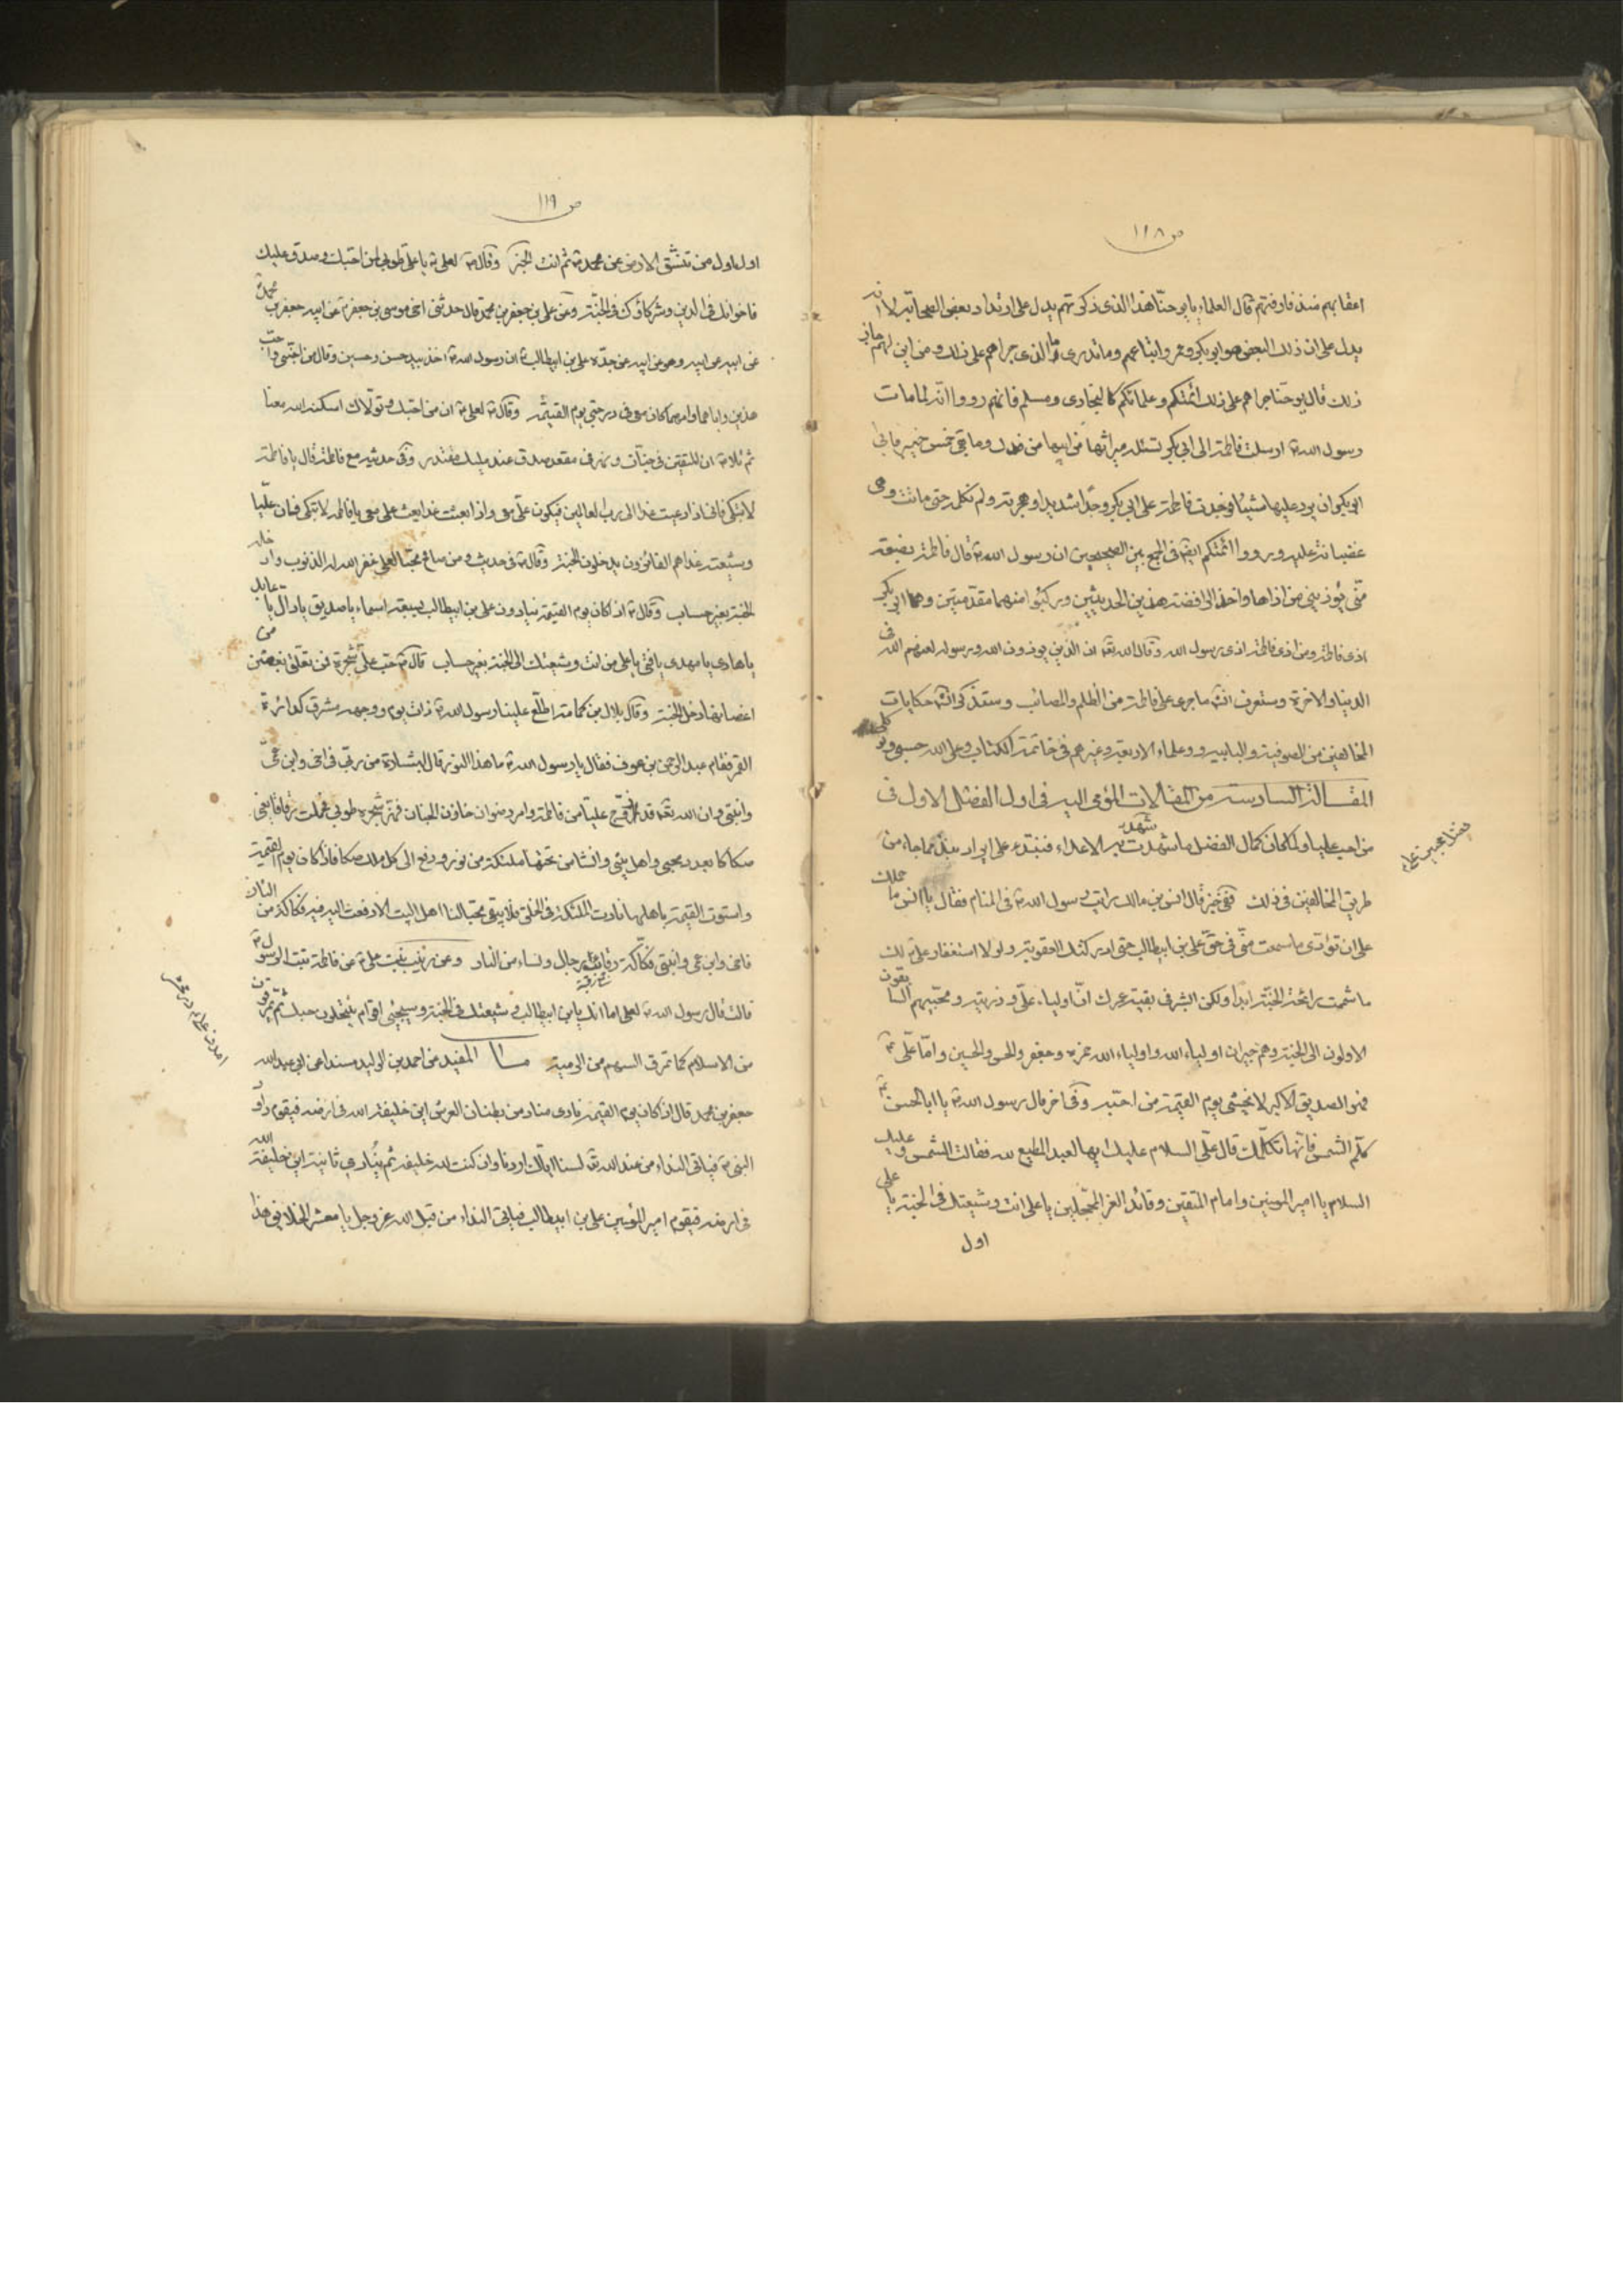 ص ١١٨
اعقابهم منذ فارقتهم قال العلماء يا يوحنا هذا الذي ذكرتم يدل على ارتداد بعض الصحابة لا انه
يدل على ان ذلك البعض هو ابو بكر وعمر واتباعهم وما ندري ما الذي جراهم على ذلك ومن اين لهم جاز
ذلك قال يوحنا جراهم على ذلك ائمتكم وعلمائكم كالبخاري ومسلم فانهم رووا انه لما مات
رسول الله ص ارسلت فاطمة الى ابي بكر تسئله ميراثها من ابيها من فدك وما بقي من خمس خيبر فابى
ابو بكر ان يرد عليها شيئا فوجدت فاطمة على ابي بكر وجدا شديدا وهجرته ولم تكلمه حتى ماتت وهي
غضبانة عليه ورووا ائمتكم ايضا في الجمع بين الصحيحين ان رسول الله ص قال فاطمة بضعة
مني يؤذيني من اذاها واخذ الرافضة هذين الحديثين وركبوا منهما مقدمتين وهما ابي بكر
اذى فاطمة ومن اذى فاطمة اذى رسول الله وقال الله تعه ان الذين يوذون الله ورسوله لعنهم الله في
الدينا والاخرة وستعرف انشه ما جرى على فاطمة من الظلم والمصائب وستذكر انشه حكايات
المخالفين من الصوفية والبابيه وعلماء الاربعة وغيرهم في خاتمة الكتاب وعلى الله حسبي
المقالة السادسة من المقالات المؤمى اليه في اول الفصل الاول في
من احب عليا ولما كان كمال الفضل ما شهدت به الاعداء فنبتدء على ايراد نبذ مما جاء من
شهد
طريق المخالفين في ذلك ففي خبر قال انس بن مالك رايت رسول الله ص في المنام فقال يا انس ما حملك
على ان تؤدي ما سمعت مني في حق علي بن ابيطالب حتى ادركتك العقوبة ولولا استغفار علي ع لك
ما شممت رائحة الجنة ابدا ولكن ابشر في بقية عمرك ان اولياء علي وذريته ومحبيهم السابقون
الاولون الى الجنة وهم جيران اولياء الله واولياء الله حمزه وجعفر والحسن والحسين واما علي ع
فهو الصديق الاكبر لا يخشى يوم القيمة من احبه وفي اخر قال رسول الله ص يا ابا الحسن ع
كلم الشمس فانها تكلمك قال علي السلام عليك ايها العبد المطيع لله فقالت الشمس وعليك
السلام يا امير المومنين وامام المتقين وقائد الغر المحجلين يا علي انت وشيعتك في الجنة يا علي
اول
ص ١١٩
اول اول من تنشق الارض عن محمد ص ثم انت الخبر وقال ص لعلي ع يا علي طوبى لمن احبك وصدق عليك
فاخوانك في الدين وشركاؤك في الجنة وعن علي بن جعفر بن محمد قال حدثني اخي موسى بن جعفر ع عن ابيه جعفر بن محمد
عن ابيه عن ابيه وهو عن ابيه عن جده علي بن ابيطالب ع ان رسول الله ص اخذ بيد حسن وحسين وقال من احبني واحب
هذين واباهما وامهما كان معي في درجتي يوم القيمة وقال ص لعلي ع ان من احبك وتولاك اسكنه الله معنا
ثم تلا ص ان للمتقين في جنات ونهر في مقعد صدق عند مليك مقتدر وفي حديثه مع فاطمة قال يا فاطمة
لا تبكي فاني اذا دعيت غدا الى رب العالمين فيكون علي معي واذا بعثت غدا بعث علي معي يا فاطمة لا تبكي فان عليا
وشيعته غدا هم الفائزون يدخلون الجنة وقال ص في حديث ومن محبا لعلي غفر الله له الذنوب وادخله
الجنة بغير حساب وقال ص اذا كان يوم القيمة ينادون علي بن ابيطالب بسبعة اسماء يا صديق يا دال يا عابد
يا هادي يا مهدي يا فتى يا علي من انت وشيعتك الى الجنة بغير حساب قال ص حب علي شجرة فمن تعلق بغصن من
اغصانها دخل الجنة وقال بلال بن حمامة اطلع علينا رسول الله ص ذات يوم ووجهه مشرق كدائرة
القمر فقام عبد الرحمن بن عوف فقال يا رسول الله ص ما هذا النور قال ابشارة من ربي في اخي وابن عمي
وابنتي وان الله تعه قد زوج عليا من فاطمة وامر رضوان خازن الجنان فهز شجرة طوبى فحملت رقاقا يعني
صكاكا بعدد محبي واهل بيتي وانشا من تحتها ملئكة من نور ودفع الى كل ملك صكا فاذا كان يوم القيمة
واستوت القيمة باهلها نادت الملئكة في الخلق فلا يبقى محبا لنا اهل البيت الا دفعت اليه فيه فكاكه من النار
فاخي وابن عمي وابنتي فكاكة رقاب رجال ونساء من النار وعن زينب بنت علي ع عن فاطمة بنت الرسول ص
قالت قال رسول الله ص لعلي اما انك يا بن ابيطالب وشيعتك في الجنة وسيجيئ اقوام ينتحلون حبك ثم يمرقون
من الاسلام كما تمرق السهم من الرمية المفيد من احمد بن الوليد مسندا عن ابي عبد الله
جعفر بن محمد قال اذا كان يوم القيمة نادى مناد من بطنان العرش اين خليفة الله في ارضه فيقوم داود
النبي ع فياتي النداء من عند الله تعه لسنا اياك اردنا وان كنت لله خليفه ثم ينادي ثانية اين خليفة الله
في ارضه فيقوم امير المؤمنين علي بن ابيطالب فياتي النداء من قبل الله عز وجل يا معشر الخلايق هذا